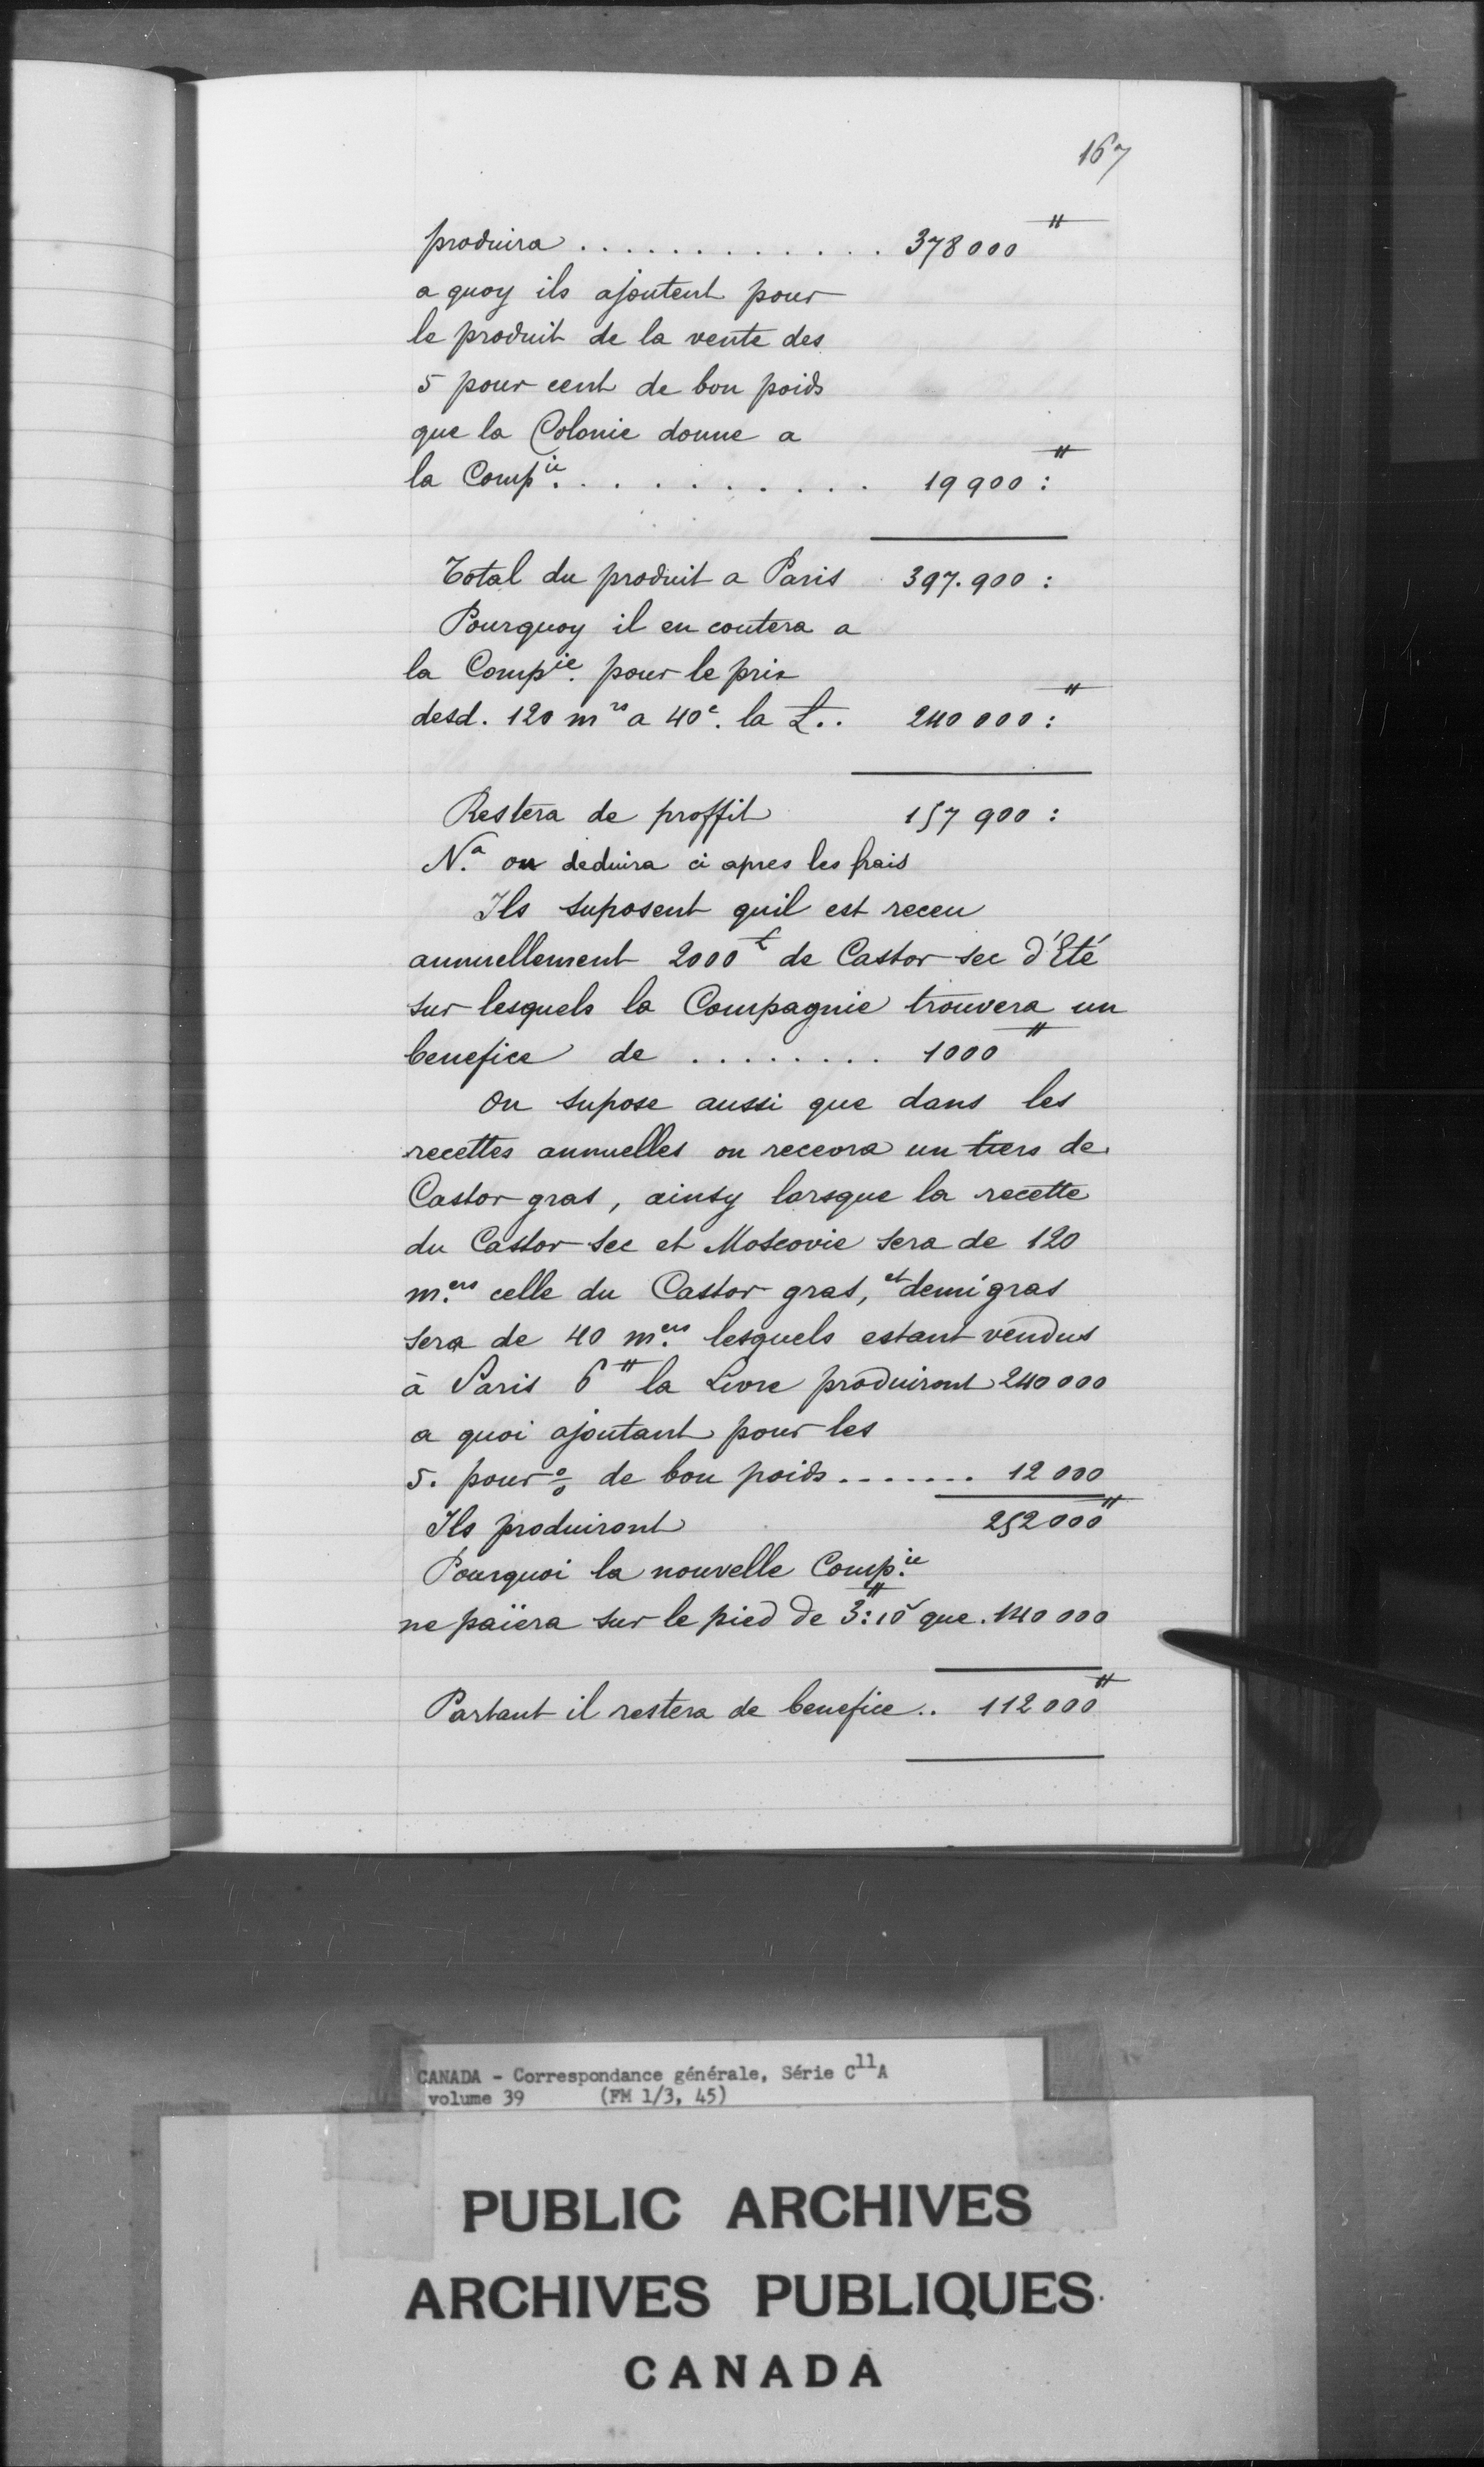 167
produira ............. 378000 ₶
a quoy ils ajoutent pour
le produit de la vente des
5 pour cent de bon poids
que la Colonie donne a
la Comp.ie .......... 19900 : ₶
Total du produit a Paris 397.900 :
Pourquoy il en coutera a
la Comp.ie pour le prix
desd. 120 m rs a 40 s. la ℔.. 240 000 : ₶
Restera de proffit 157 900 :
N.a on deduira ci apres les frais
Ils suposent quil est receu
annuellement 2000 ℔ de Castor sec d'Eté
sur lesquels la Compagnie trouvera un
benefice de ........ 1000 ₶
On supose aussi que dans les
recettes annuelles on recevra un tiers de
Castor gras, ainsy lorsque la recette
du Castor sec et Moscovie sera de 120
m.ers celle du Castor gras, et demi gras
sera de 40 m.ers lesquels estant vendus
à Paris 6 ₶ la Livre produiront 240 000
a quoi ajoutant pour les
5. pour % de bon poids ....... 12 000
Ils produiront 252 000 ₶
Pourquoi la nouvelle Comp.ie
ne païera sur le pied de 3 ₶ : 10 s que . 140 000
Partant il restera de benefice .. 112 000 ₶
CANADA - Correspondance générale, Série C11A
volume 39 (FM 1/3, 45)
PUBLIC ARCHIVES
ARCHIVES PUBLIQUES
CANADA